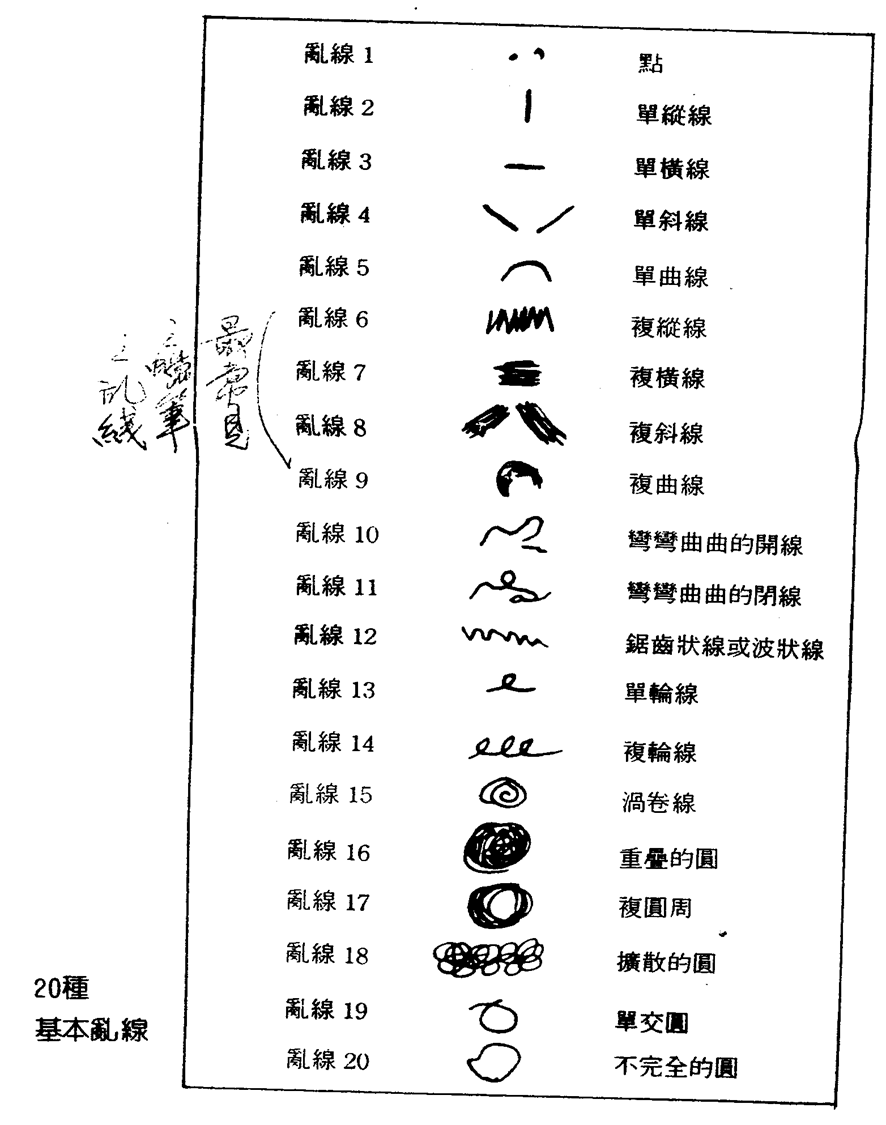 亂線 1 點
亂線 2 單縱線
亂線 3 單橫線
亂線 4 單斜線
亂線 5 單曲線
亂線 6 複縱線
亂線 7 複橫線
亂線 8 複斜線
亂線 9 複曲線
亂線 10 彎彎曲曲的開線
亂線 11 彎彎曲曲的閉線
亂線 12 鋸齒狀線或波狀線
亂線 13 單輪線
亂線 14 複輪線
亂線 15 渦卷線
亂線 16 重疊的圓
亂線 17 複圓周
亂線 18 擴散的圓
亂線 19 單交圓
亂線 20 不完全的圓
最常見
之蠟筆
之乱线
20種
基本亂線